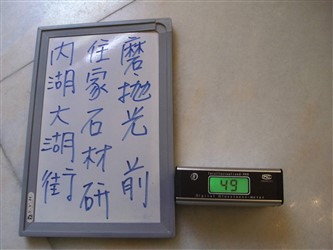 內湖大湖街
住家石材研
磨拋光前
49
Digital Glossiness Meter